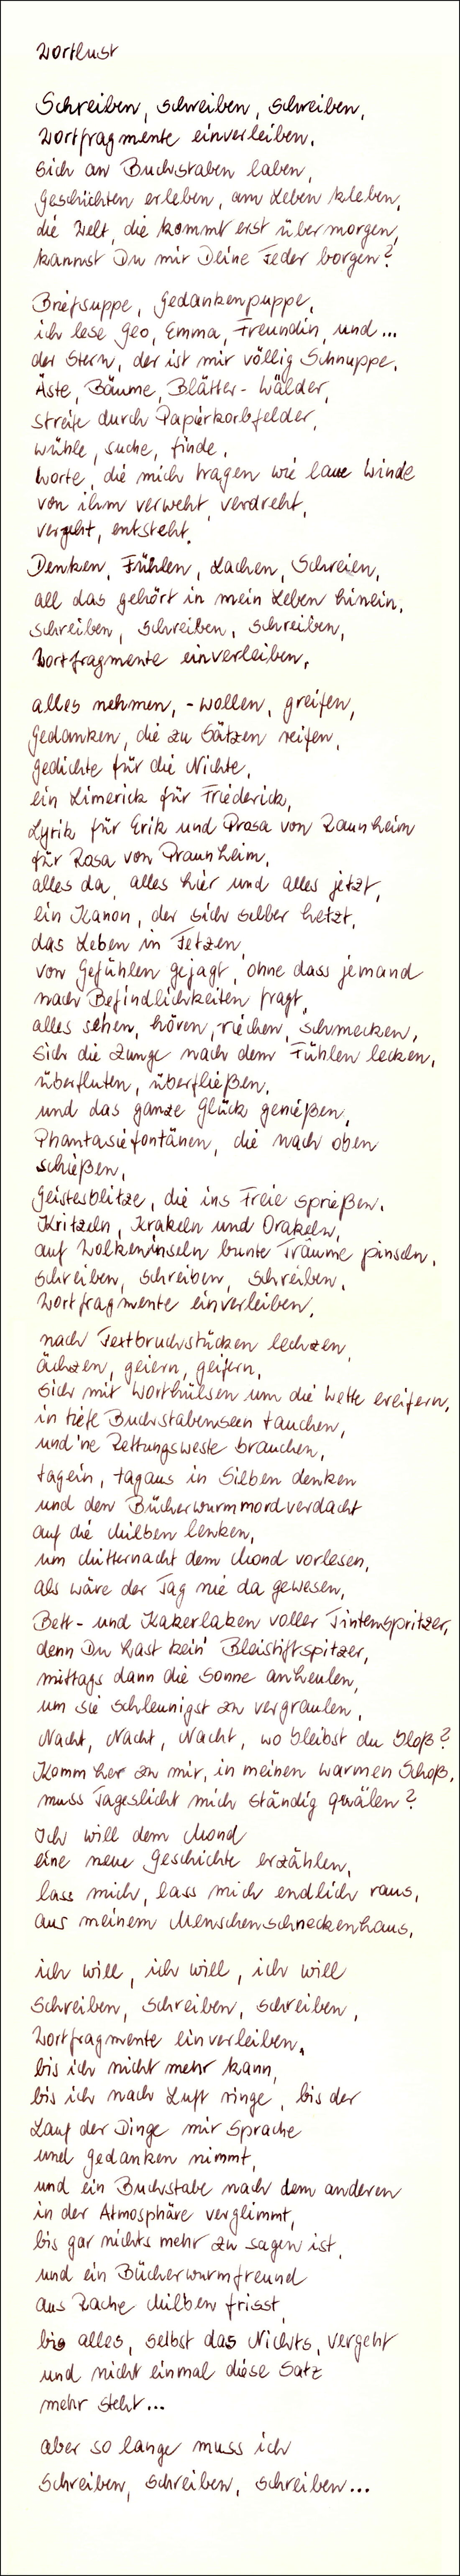 Wortlust
Schreiben, schreiben, schreiben,
Wortfragmente einverleiben.
Sich an Buchstaben laben,
Geschichten erleben, am Leben kleben,
die Welt, die kommt erst übermorgen,
kannst Du mir Deine Feder borgen?
Briefsuppe, Gedankenpuppe,
ich lese Geo, Emma, Freundin, und...
der Stern, der ist mir völlig Schnuppe.
Äste, Bäume, Blätter- Wälder,
streife durch Papierkorbfelder,
wühle, suche, finde.
Worte, die mich tragen wie laue Winde
von ihm verweht, verdreht,
vergeht, entsteht.
Denken, Fühlen, Lachen, Schreien,
all das gehört in mein Leben hinein.
schreiben, schreiben, schreiben,
Wortfragmente einverleiben,
alles nehmen, -wollen, greifen,
Gedanken, die zu Sätzen reifen,
Gedichte für die Nichte,
ein Limerick für Friederick,
Lyrik für Erik und Prosa von Raunheim
für Rosa von Praunheim,
alles da, alles hier und alles jetzt,
ein Kanon, der sich selber hetzt,
das Leben in Fetzen,
von Gefühlen gejagt, ohne dass jemand
nach Befindlichkeiten fragt,
alles sehen, hören, riechen, schmecken,
sich die Zunge nach dem Fühlen lecken,
überfluten, überfließen,
und das ganze Glück genießen,
Phantasiefontänen, die nach oben
schießen,
Geistesblitze, die ins Freie sprießen.
Kritzeln, Krakeln und Orakeln,
auf Wolkeninseln bunte Träume pinseln,
schreiben, schreiben, schreiben,
Wortfragmente einverleiben,
nach Textbruchstücken lechzen,
ächzen, geiern, geifern,
sich mit Worthülsen um die Wette ereifern,
in tiefe Buchstabenseen tauchen,
und 'ne Rettungsweste brauchen,
tagein, tagaus in Silben denken
und den Bücherwurmmordverdacht
auf die Milben lenken,
um Mitternacht dem Mond vorlesen,
als wäre der Tag nie da gewesen,
Bett- und Kakerlaken voller Tintenspritzer,
denn Du hast kein' Bleistiftspitzer,
mittags dann die Sonne anheulen,
um sie schleunigst zu vergraulen,
Nacht, Nacht, Nacht, wo bleibst du bloß?
Komm her zu mir, in meinen warmen Schoß,
muss Tageslicht mich ständig quälen?
Ich will dem Mond
eine neue Geschichte erzählen,
lass mich, lass mich endlich raus,
aus meinem Menschenschneckenhaus,
ich will, ich will, ich will
schreiben, schreiben, schreiben,
Wortfragmente einverleiben,
bis ich nicht mehr kann,
bis ich nach Luft ringe, bis der
Lauf der Dinge mir Sprache
und Gedanken nimmt,
und ein Buchstabe nach dem anderen
in der Atmosphäre verglimmt,
bis gar nichts mehr zu sagen ist,
und ein Bücherwurmfreund
aus Rache Milben frisst,
bis alles, selbst das Nichts, vergeht
und nicht einmal diese Satz
mehr steht...
aber so lange muss ich
schreiben, schreiben, schreiben...